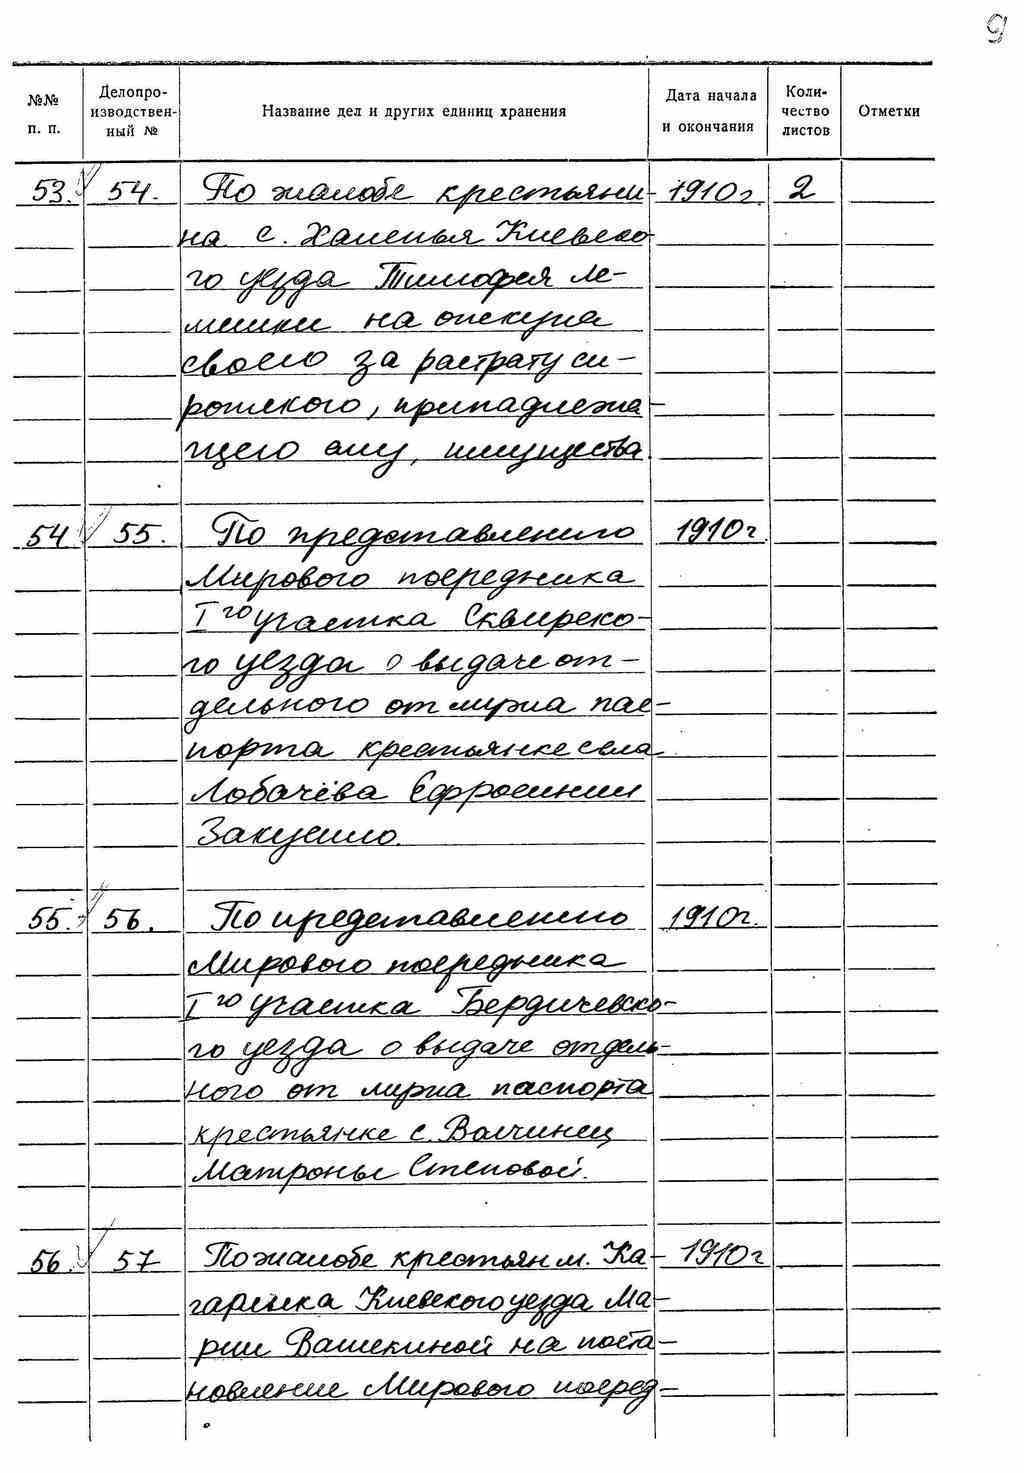 9
№№ п. п. Делопроизводственный № Название дел и других единиц хранения Дата начала и окончания Количество листов Отметки
53. 54. По жалобе крестьяни- 1910г. 2
на с. Халепья Киевско-
го уезда Тимофея Ле-
мешки на опекуна
своего за растрату си-
ротского, принадлежа-
щего ему, имущества
54 55. По представлению 1910г
Мирового посредника
Iго участка Сквирско-
го уезда о выдаче от-
дельного от мужа пас-
порта крестьянке села
Лобачёва Ефросинии
55. 56. По представлению 1910г.
Мирового посредника
Iго участка Бердичевско-
го уезда о выдаче отдель-
ного от мужа паспорта
крестьянке с. Волчинец
Матроны Степовой.
56. 57 По жалобе крестьян м. Ка- 1910г
гарлыка Киевского уезда Ма-
рии Вашекиной на поста-
новление Мирового посред-